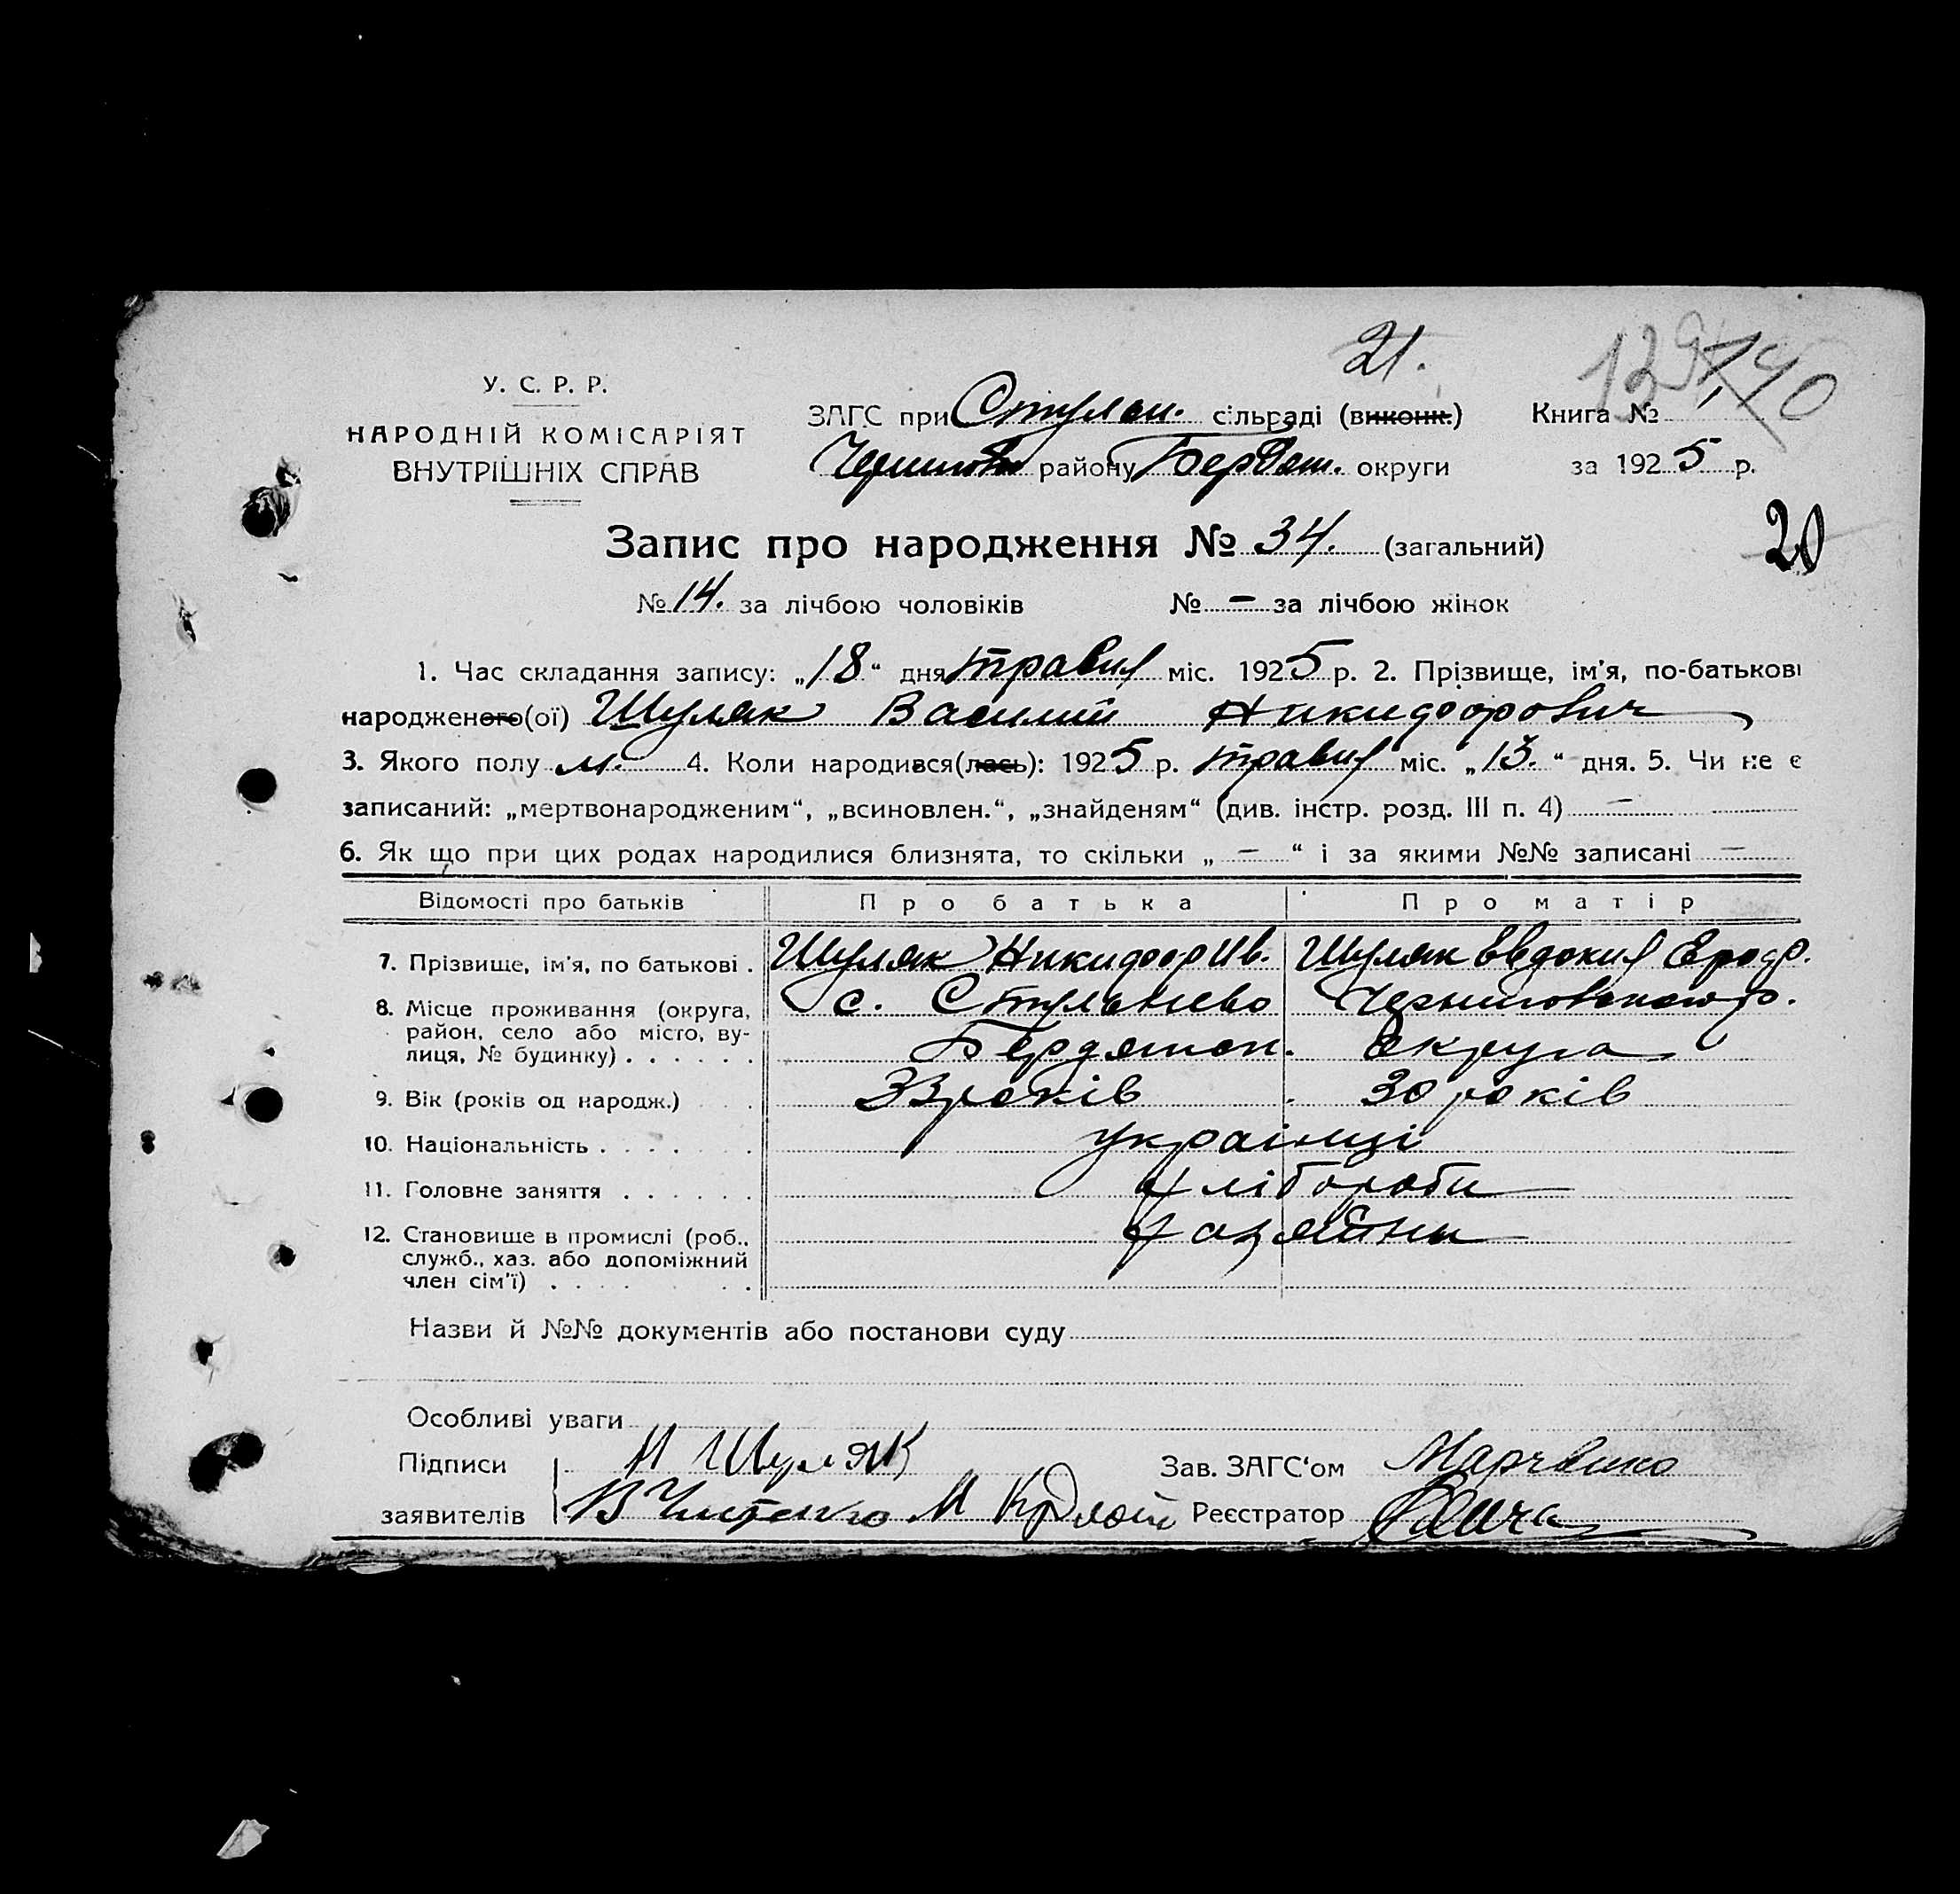 21.
139 140
У. С. Р. Р.
НАРОДНІЙ КОМІСАРІЯТ
ВНУТРІШНІХ СПРАВ
ЗАГС при Стулен. сільраді (виконк.) Книга № 1
району Бердян. округи за 1925 р.
20
Запис про народження № 34. (загальний)
№ 14. за лічбою чоловіків № — за лічбою жінок
1. Час складання запису: „18“ дня травня міс. 1925 р. 2. Прізвище, ім'я, по-батькові
народженого(ої) Шуляк Василій Никидфорович
3. Якого полу м. 4. Коли народився(лась): 1925 р. травня міс. „13.“ дня. 5. Чи не є
записаний: „мертвонародженим“, „всиновлен.“, „знайденям“ (див. інстр. розд. III п. 4) —
6. Як що при цих родах народилися близнята, то скільки „ — “ і за якими №№ записані —
Відомості про батьків Про батька Про матір
7. Прізвище, ім'я, по батькові . Шуляк Никидфор Ив. Шуляк Евдокия
8. Місце проживання (округа, с. Стульнево Черниговского р.
район, село або місто, ву-
лиця, № будинку) . . . . . . Бердянск. округа
9. Вік (років од народж.) 33 років 30 років
10. Національність . . . . . . українці
11. Головне заняття . . . . . . хлібороби
12. Становище в промислі (роб., хазяйни
служб., хаз. або допоміжний
член сім'ї) . . . .
Назви й №№ документів або постанови суду
Особливі уваги
Підписи Н Шуляк Зав. ЗАГС‘ом Марченко
заявителів Реєстратор